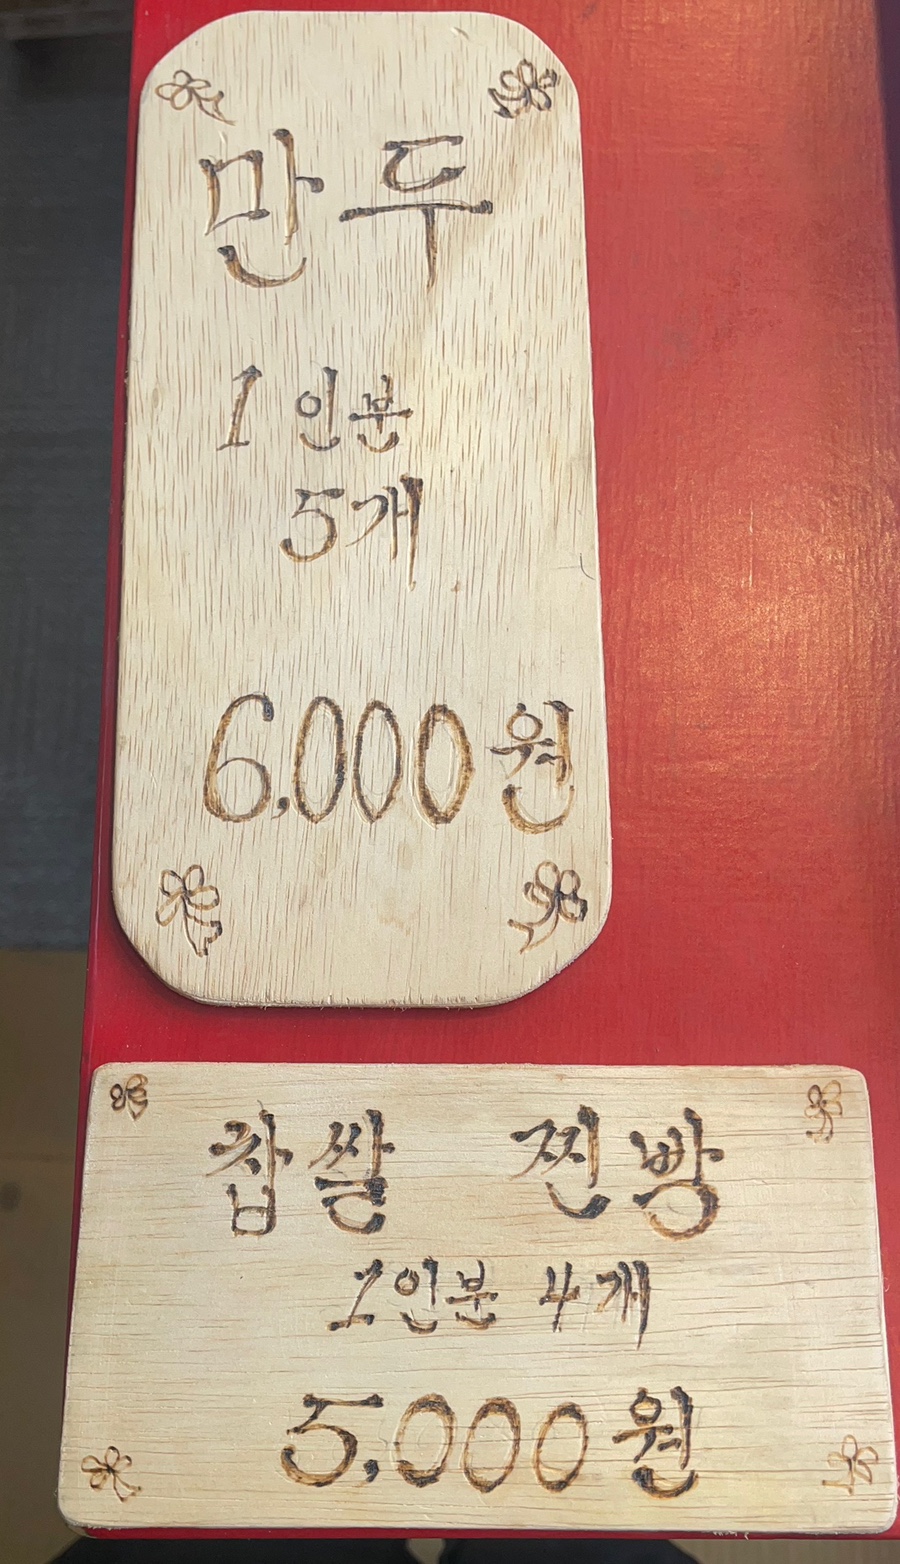 만두
1 인분
5개
6,000원
찹쌀 찐빵
1인분 4개
5,000원